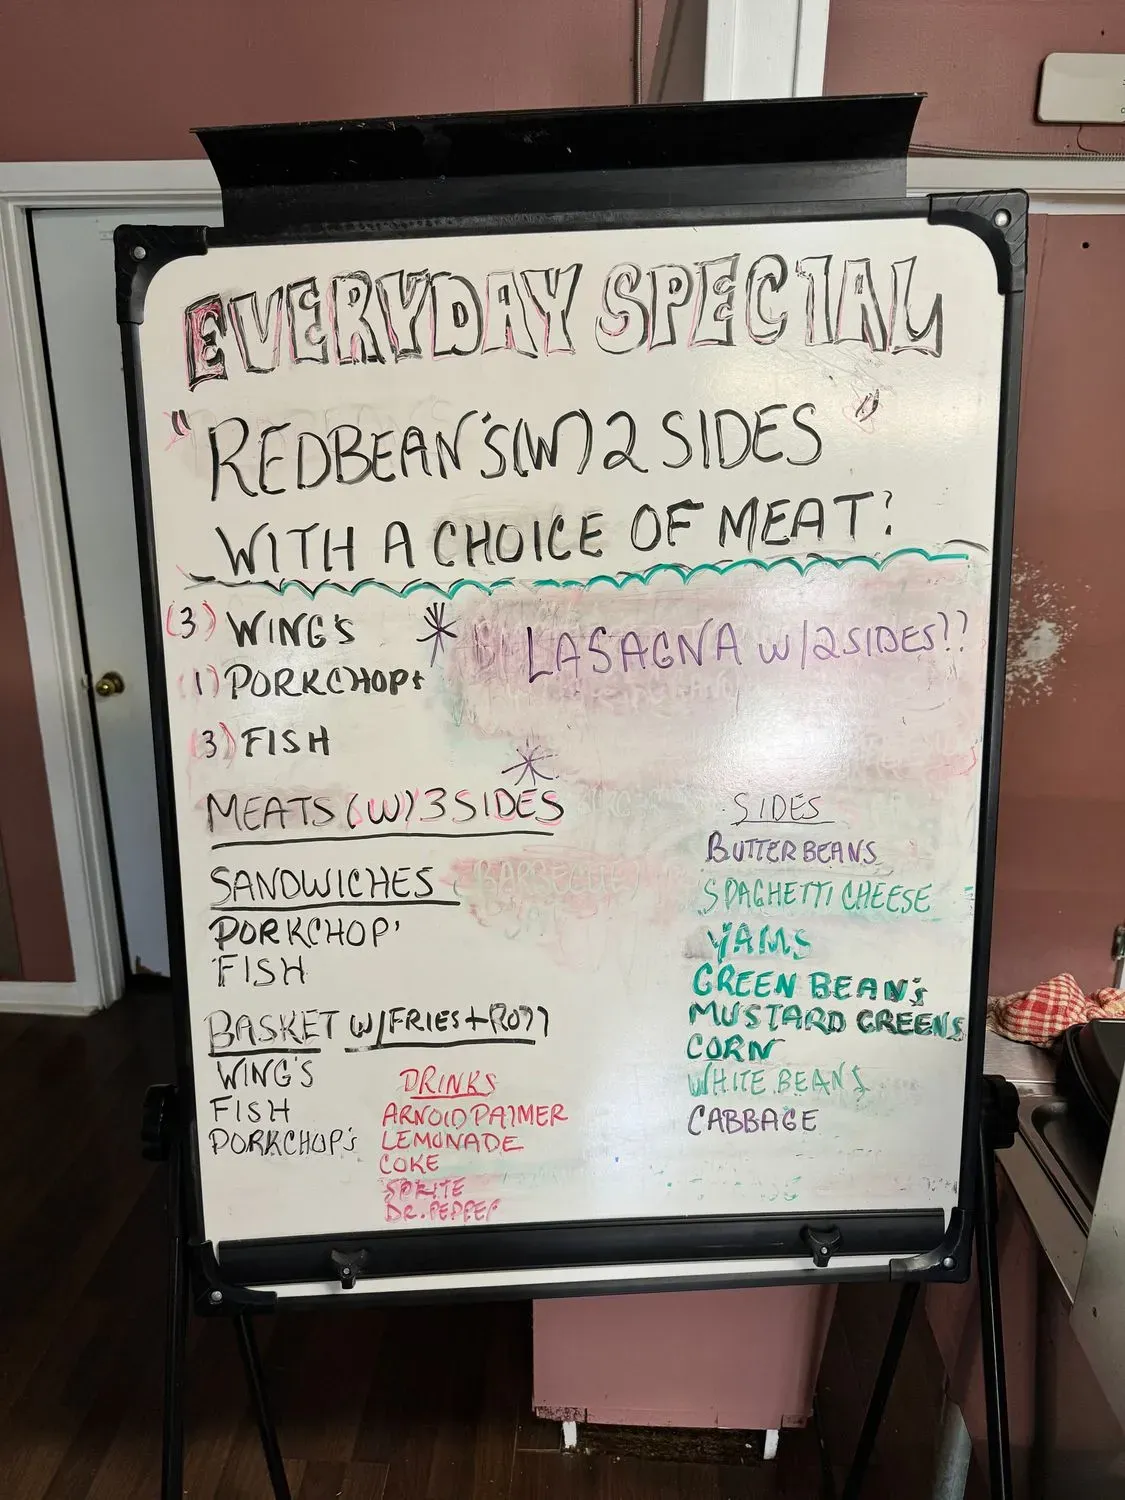 EVERYDAY SPECIAL
"REDBEAN'S (W) 2 SIDES"
WITH A CHOICE OF MEAT?
(3) WING'S
(1) PORKCHOPS
(3) FISH
* LASAGNA W/2 SIDES??
*
MEATS (W) 3 SIDES
SANDWICHES (BARBECUE)
PORKCHOP'
FISH
BASKET W/FRIES + ROLL
WING'S
FISH
PORKCHOP'S
DRINKS
ARNOLD PALMER
LEMONADE
COKE
SPRITE
DR. PEPPER
SIDES
BUTTERBEANS
SPAGHETTI CHEESE
YAMS
GREEN BEAN'S
MUSTARD GREENS
CORN
WHITE BEANS
CABBAGE